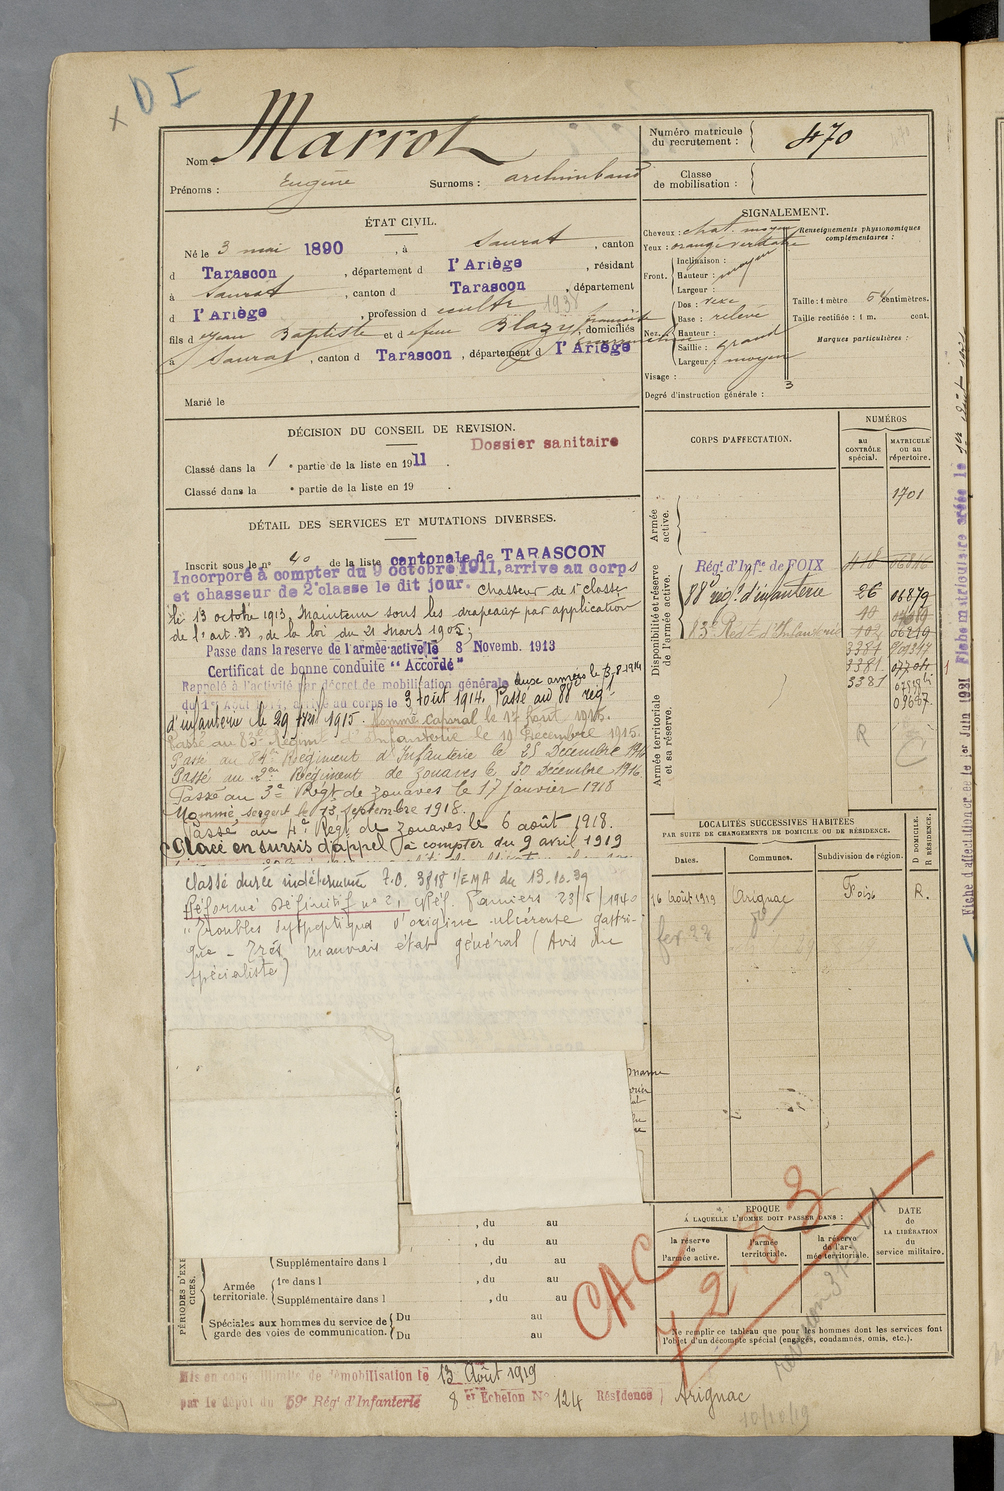 D I
Nom : Marrot
Prénoms : Eugène Surnoms : archimbaud
Numéro matricule
du recrutement : 470
Classe
de mobilisation :
ÉTAT CIVIL.
Né le 3 mai 1890, à Saurat, canton
d Tarascon, département d l'Ariège, résidant
à Saurat, canton d Tarascon, département
d l'Ariège, profession d cultr 1938
fils d Jean Baptiste et d efeue Blazy domiciliés
à Saurat, canton d Tarascon, département d l'Ariège
Marié le
SIGNALEMENT.
Cheveux : chat. moyen
Yeux : orangé verdâtre
Renseignements physionomiques
complémentaires :
Front.
Inclinaison :
Hauteur : moyen
Largeur :
Nez.
Dos : rexe
Base : relevé
Hauteur :
Saillie : grand
Largeur : moyen
Taille : 1 mètre 64 centimètres.
Taille rectifiée : 1 m. cent.
Marques particulières :
Visage :
3
Degré d'instruction générale :
DÉCISION DU CONSEIL DE REVISION.
Dossier sanitaire
Classé dans la 1e partie de la liste en 1911.
Classé dans la e partie de la liste en 19 .
DÉTAIL DES SERVICES ET MUTATIONS DIVERSES.
Inscrit sous le n° 40 de la liste cantonale de TARASCON
Incorporé à compter du 9 octobre 1911, arrive au corps
et chasseur de 2e classe le dit jour. Chasseur de 1e classe
le 13 octobre 1913. Maintenu sous les drapeaux par application
de l'art. 33, de la loi du 21 mars 1905;
Passe dans la reserve de l'armée active le 8 Novemb. 1913
Certificat de bonne conduite "Accordé"
Rappelé à l'activité par décret de mobilisation générale
du 1er Août 1914, arrivé au corps le 3 Août 1914. Passé au 88e régt
d'infanterie le 29 1915. Nommé caporal le 17 Aout 1915.
Passé au 83e Régiment d'Infanterie le 19 Decembre 1915.
Passé au Régiment d'Infanterie le 25 Décembre 1916
Passé au 2em Régiment de zouaves le 30 Décembre 1916.
Passé au 3e Régt de zouaves le 17 janvier 1918
Nommé sergent le 13 Septembre 1918.
Passé au 4e Régt de zouaves le 6 août 1918.
Placé en sursis d'appel à compter du 9 avril 1919
Classé durée indéterminée 7.0. 3818 1/EMA du 13.10.39
Réformé Définitif n° 2, Réf. Pamiers 23/5/1940
"Troubles dyspeptiques d'origine ulcéreuse gastri-
que - Très mauvais état général (Avis du
spécialiste)
CORPS D'AFFECTATION.
NUMÉROS
au
CONTRÔLE
spécial.
MATRICULE
ou au
répertoire.
Armée
active.
1701
Disponibilité et réserve
de l'armée active.
Rég. d'Infie de FOIX 418 06846
88e régt d'infanterie 26 06879
40
83e Regt d'Infanterie 102 06219
3387 909347
3381 07706
3381
03667
R
Armée territoriale
et sa réserve.
LOCALITÉS SUCCESSIVES HABITÉES
PAR SUITE DE CHANGEMENTS DE DOMICILE OU DE RÉSIDENCE.
Dates. Communes. Subdivision de région. D DOMICILE. R RÉSIDENCE.
16 août 1919 Arignac Foix R.
fev. 22
, du au
, du au
PÉRIODES D'EXERCICES.
Supplémentaire dans l , du au
Armée
territoriale.
1re dans l , du au
Supplémentaire dans l , du au
Spéciales aux hommes du service de
garde des voies de communication.
Du au
Du au
EPOQUE
À LAQUELLE L'HOMME DOIT PASSER DANS :
la réserve
de
l'armée active.
l'armée
territoriale.
la réserve
de l'ar-
mée territoriale.
DATE
de
LA LIBÉRATION
du
service militaire.
CAC
7233
Ne remplir ce tableau que pour les hommes dont les services font
l'objet d'un décompte spécial (engagés, condamnés, omis, etc.).
Mis en congé illimité de démobilisation le 13 Août 1919
par le dépôt du 59e Régt d'Infanterie 8er Echelon No 124 Résidence Arignac
10/10/19
Fiche d'affectation créée le 1er Juin 1921 Fiche matriculaire créée le 1er